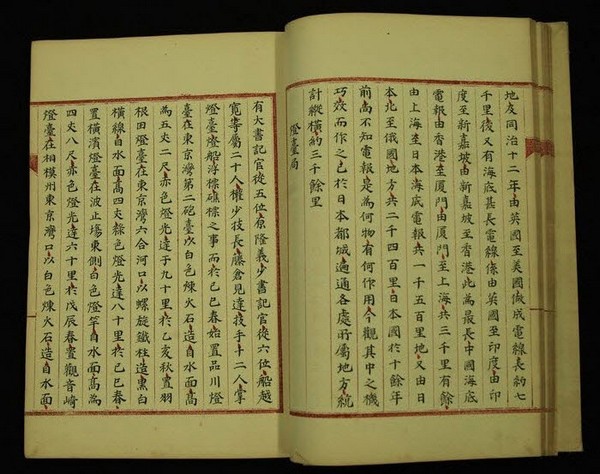 地友同治十二年由英國至美國做成電線長約七
千里後又有海底甚長電線係由英國至印度由印
度至新嘉坡由新嘉坡至香港此為最長中國海底
電報由香港至厦門由厦門至上海共三千里有餘
由上海至日本海底電報共一千五百里地又由日
本北至俄國地方共二千四百里日本國於十餘年
前尚不知電報是為何物有何作用今觀其中之機
巧效而作之已於日本都城遍通各處所屬地方統
計縱橫約三千餘里
燈臺局
有大書記官從五位原隆義少書記官從六位船越
寬等屬二十人權少技長藤倉見達技手十二人掌
燈臺燈船浮標礁標之事而於己巳春始置品川燈
臺在東京灣第二砲臺以白色煉火石造自水面高
為五丈二尺赤色燈光達于九十里於乙亥秋置羽
根田燈臺在東京灣六合河口以螺旋鐵柱造黑白
橫線自水面高四丈綠色燈光達八十里於己巳春
置橫濱燈臺在波止場東側白色燈竿自水面高為
四丈八尺赤色燈光達六十里於戊辰春置觀音崎
燈臺在相模州東京灣口以白色煉火石造自水面